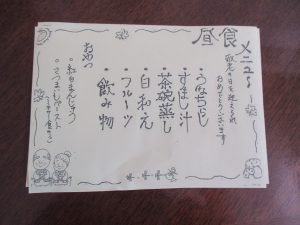 昼食メニュー
敬老の日を迎えられ
おめでとうございます
・うなちらし
・すまし汁
・茶碗蒸し
・白和え
・フルーツ
・飲み物
おやつ
・紅白まんじゅう
・さつまいもペースト